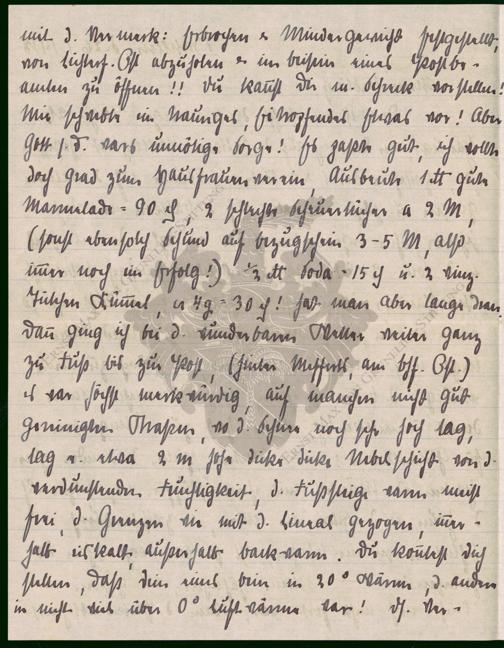 mit d. Vermerk: Erbrochen u Mindergewicht festgestellt,
von Lichterf. Ost abzuholen u im beisein eines Postbe-
amten zu öffnen!! Du kannst Dir m. Schreck vorstellen!
Mir schwebte ein trauriges, Etwas vor! Aber
Gott s. d. wars unnötige Sorge! Es paßte gut, ich wollte
doch grad zum Hausfrauenverein, Ausbeute 1 ℔ gute
Marmelade = 90 ₰, 2 schlechte Scheuertücher a 2 M,
(sonst ebensolch Schund auf bezugschein 3-5 M, also
immer noch ein Erfolg!) ½ ℔ Soda = 15 ₰ u. 2 winz.
Tütchen Kümmel, a 4 g = 30 ₰! hat man aber lange dran.
Dann ging ich bei d. wunderbaren Wetter weiter ganz
zu Fuß bis zur Post, (hinter am Bhf. Ost.)
es war höchst merkwürdig, auf manchen nicht gut
gereinigten Straßen, wo d. Schnee noch sehr hoch lag,
lag e. etwa 2 m hohe dicke dicke Nebelschicht von d.
verdunstenden Feuchtigkeit, d. Fußsteige waren meist
frei, d. Grenzen wie mit d. Lineal gezogen, inner-
halb eiskalt, außerhalb backwarm. Du konntest dich
stellen, daß dein eines bein in 20° Wärme, d. andere
in nicht viel über 0° Luftwärme war! d. Ver-